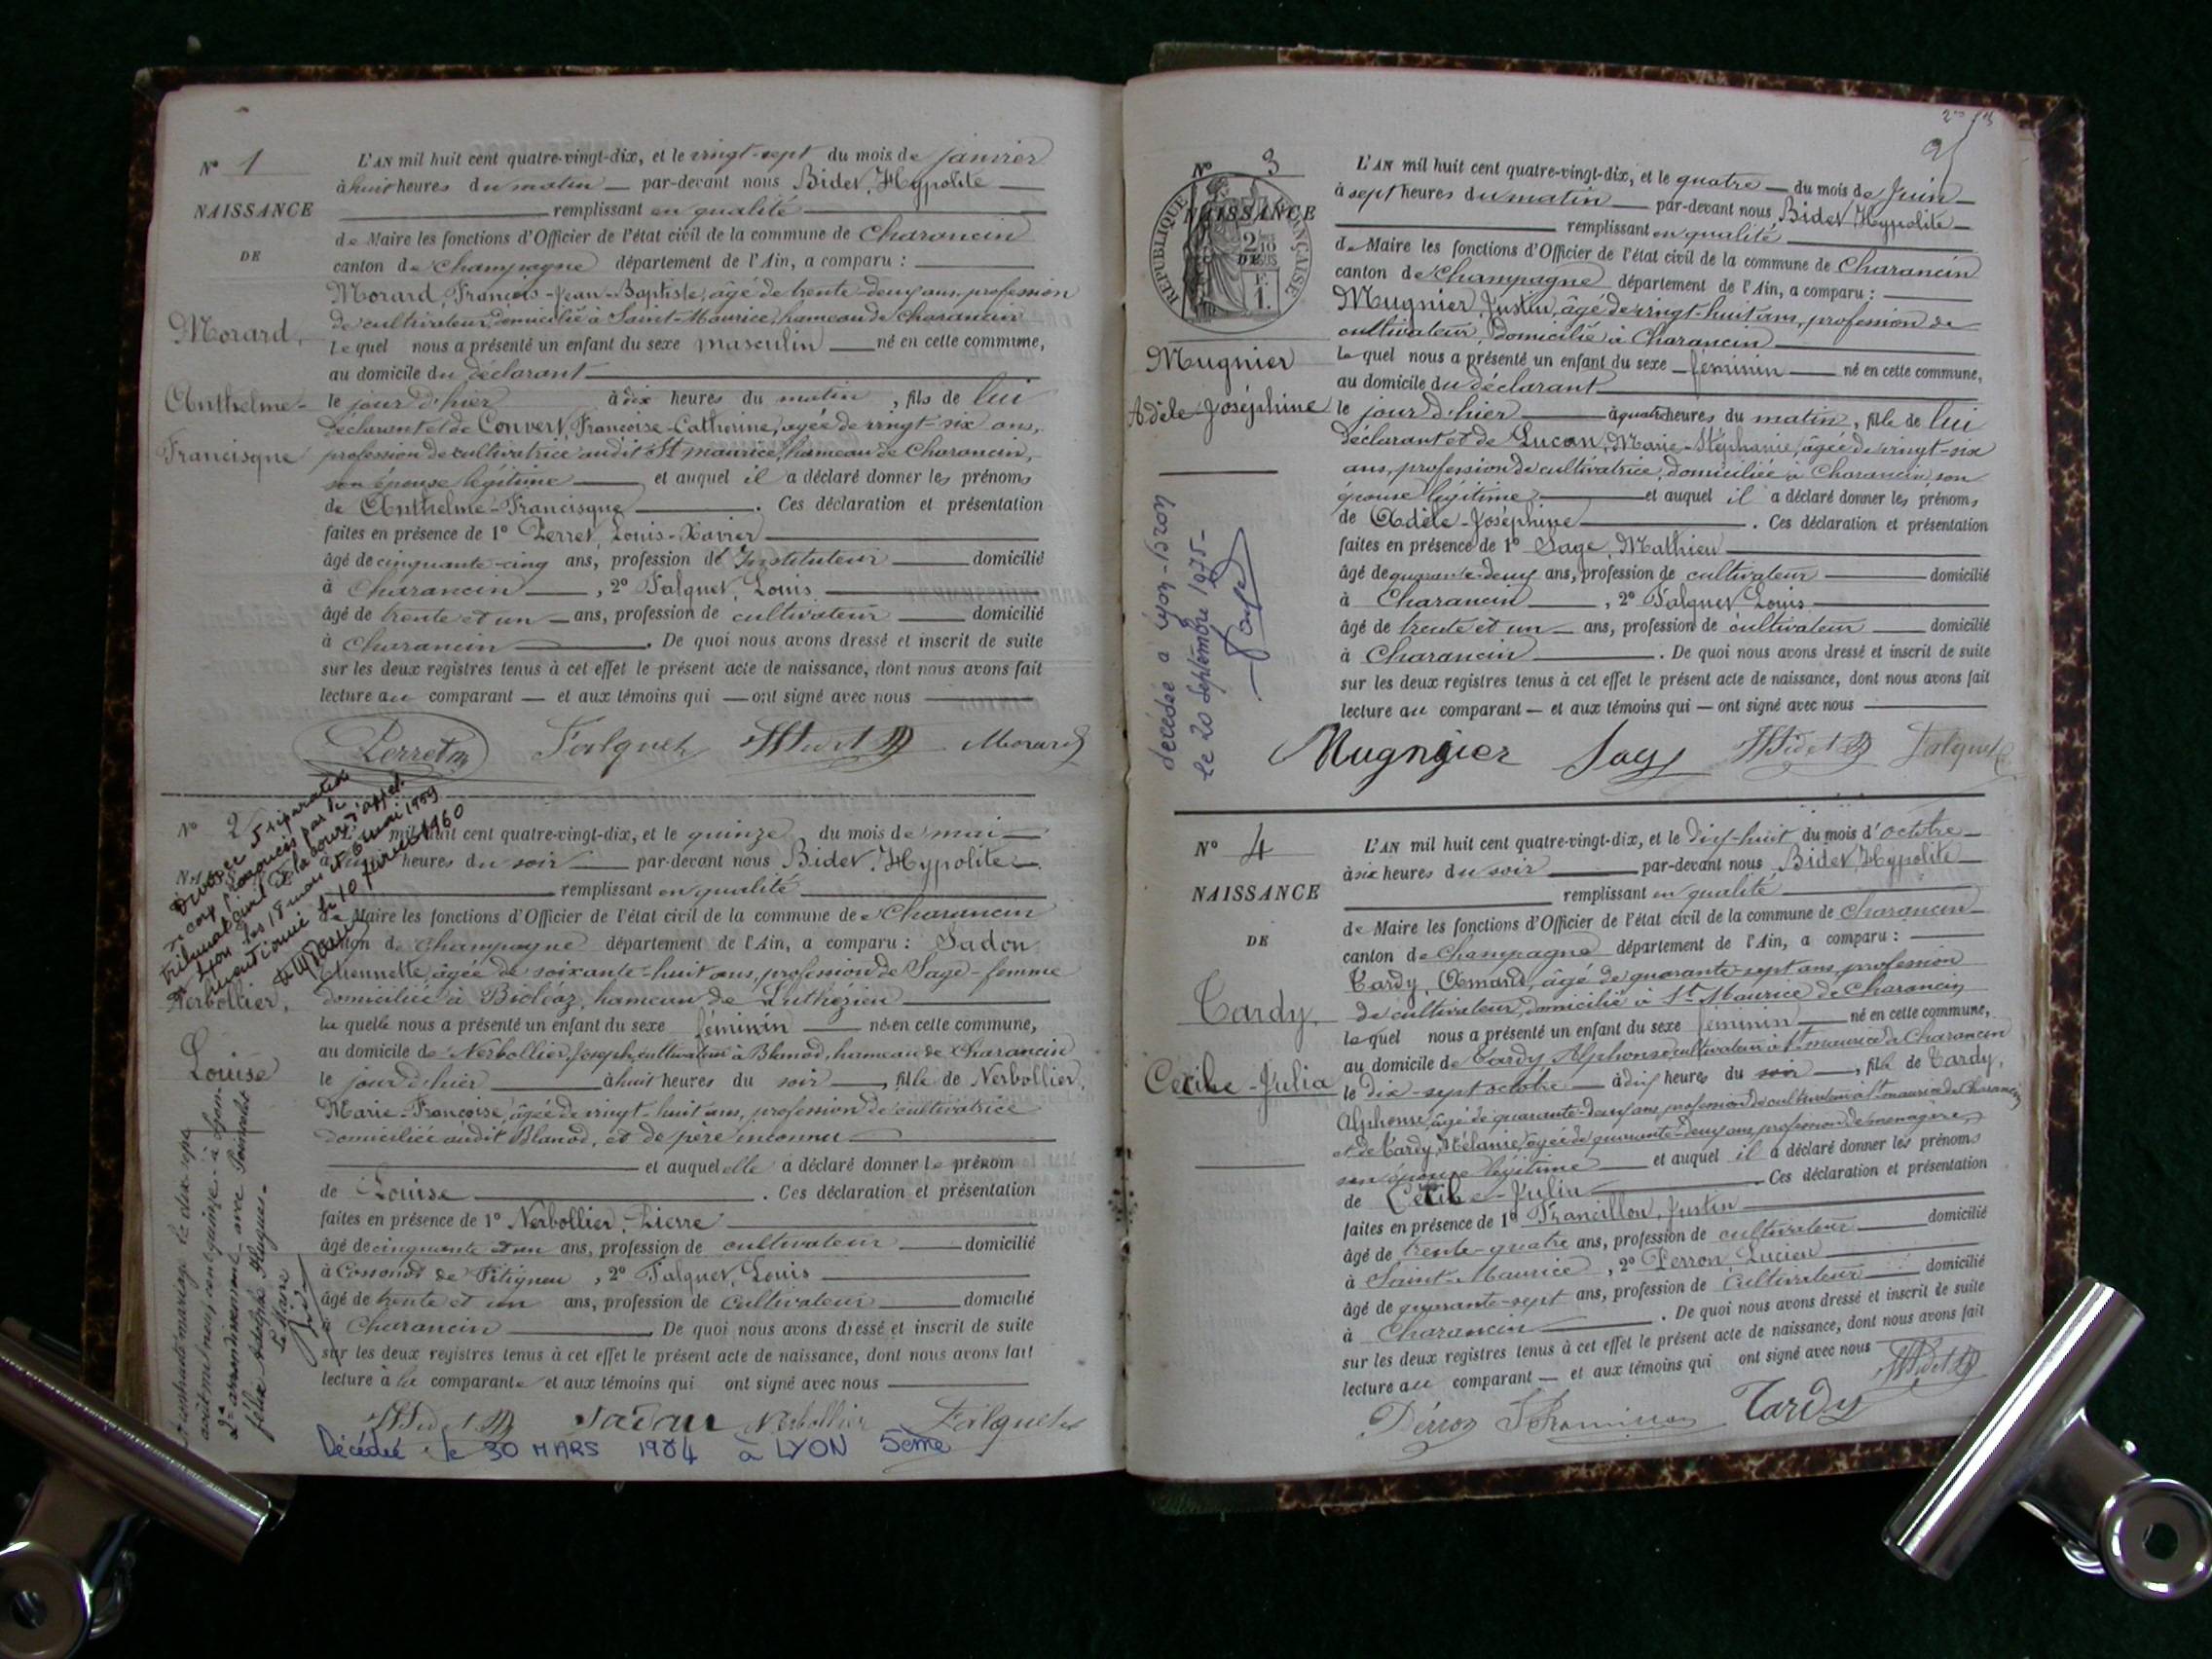 N° 1
NAISSANCE
DE
Morard,
Anthelme-
Francisque
L'AN mil huit cent quatre-vingt-dix, et le vingt-sept du mois de janvier
à huit heures du matin par-devant nous Bidet, Hypolite
remplissant en qualité
de Maire les fonctions d'Officier de l'état civil de la commune de Charancin
canton de Champagne département de l'Ain, a comparu :
Morard, François-Jean-Baptiste, âgé de trente-deux ans, profession
de cultivateur, domicilié à Saint-Maurice, hameau de Charancin
lequel nous a présenté un enfant du sexe masculin né en cette commune,
au domicile du déclarant
le jour d'hier à dix heures du matin, fils de lui
déclarant et de Convert, Françoise-Catherine, agée de vingt-six ans,
profession de cultivatrice audit St maurice, hameau de Charancin,
son épouse légitime et auquel il a déclaré donner les prénoms
de Anthelme-Francisque. Ces déclaration et présentation
faites en présence de 1° Perret, Louis-Xavier
âgé de cinquante-cinq ans, profession d'Instituteur domicilié
à Charancin, 2° Falquet, Louis
âgé de trente et un ans, profession de cultivateur domicilié
à Charancin. De quoi nous avons dressé et inscrit de suite
sur les deux registres tenus à cet effet le présent acte de naissance, dont nous avons fait
lecture au comparant et aux témoins qui ont signé avec nous
Perret Falquet HBidet Morard
N° 2
Divorce séparation
de corps prononcés par le
tribunal civil et la cour d'appel
de Lyon les 18 mai et 6 mai 1959
mentionné le 10 février 1960
Nerbollier,
Louise
A contracté mariage le dix sept
août mil neuf cent quinze à Lyon
2e arrondissement avec Poincelet
félix Adolphe Hugues.
Le Maire
mil huit cent quatre-vingt-dix, et le quinze du mois de mai
heures du soir par-devant nous Bidet, Hypolite
remplissant en qualité
de Maire les fonctions d'Officier de l'état civil de la commune de Charancin
canton de Champagne département de l'Ain, a comparu : Sadon
Etiennette, âgée de soixante-huit ans, profession de Sage-femme
domiciliée à Bioléaz, hameau de Luthézieu
laquelle nous a présenté un enfant du sexe féminin né en cette commune,
au domicile de Nerbollier, Joseph, cultivateur à Blanod, hameau de Charancin
le jour d'hier à huit heures du soir, fille de Nerbollier,
Marie-Françoise, âgée de vingt-huit ans, profession de cultivatrice
domiciliée audit Blanod, et de père inconnu
et auquel elle a déclaré donner le prénom
de Louise. Ces déclaration et présentation
faites en présence de 1° Nerbollier, Pierre
âgé de cinquante et un ans, profession de cultivateur domicilié
à Cossonod de Vitigneu, 2° Falquet, Louis
âgé de trente et un ans, profession de cultivateur domicilié
à Charancin. De quoi nous avons dressé et inscrit de suite
sur les deux registres tenus à cet effet le présent acte de naissance, dont nous avons fait
lecture à la comparante et aux témoins qui ont signé avec nous
HBidet Sadon Nerbollier Falquet
Décédée le 30 MARS 1984 à LYON 5ème
N° 3
NAISSANCE
DE
RÉPUBLIQUE FRANÇAISE
Mugnier
Adèle-Joséphine
décédée à Lyon-Bron
le 20 Septembre 1975-
L'AN mil huit cent quatre-vingt-dix, et le quatre du mois de Juin
à sept heures du matin par-devant nous Bidet, Hypolite
remplissant en qualité
de Maire les fonctions d'Officier de l'état civil de la commune de Charancin
canton de Champagne département de l'Ain, a comparu :
Mugnier, Justin, âgé de vingt-huit ans, profession de
cultivateur, domicilié à Charancin
lequel nous a présenté un enfant du sexe féminin né en cette commune,
au domicile du déclarant
le jour d'hier à quatre heures du matin, fille de lui
déclarant et de Lucan, Marie-Stéphanie, âgée de vingt-six
ans, profession de cultivatrice, domiciliée à Charancin son
épouse légitime et auquel il a déclaré donner les prénoms
de Adèle-Joséphine. Ces déclaration et présentation
faites en présence de 1° Sage, Mathieu
âgé de quarante-deux ans, profession de cultivateur domicilié
à Charancin, 2° Falquet Louis
âgé de trente et un ans, profession de cultivateur domicilié
à Charancin. De quoi nous avons dressé et inscrit de suite
sur les deux registres tenus à cet effet le présent acte de naissance, dont nous avons fait
lecture au comparant et aux témoins qui ont signé avec nous
Mugnier Sage HBidet Falquet
N° 4
NAISSANCE
DE
Tardy,
Cécile-Julia
L'AN mil huit cent quatre-vingt-dix, et le dix-huit du mois d'octobre
à six heures du soir par-devant nous Bidet, Hypolite
remplissant en qualité
de Maire les fonctions d'Officier de l'état civil de la commune de Charancin
canton de Champagne département de l'Ain, a comparu :
Tardy, Armand, âgé de quarante-sept ans, profession
de cultivateur, domicilié à St Maurice de Charancin
lequel nous a présenté un enfant du sexe féminin né en cette commune,
au domicile de Tardy Alphonse, cultivateur à St maurice de Charancin
le dix-sept octobre à dix heures du soir, fille de Tardy,
Alphonse, âgé de quarante-deux ans, profession de cultivateur à St maurice de Charancin
et de Tardy, Mélanie, âgée de quarante-deux ans, profession de ménagère,
son épouse légitime et auquel il a déclaré donner les prénoms
de Cécile-Julia. Ces déclaration et présentation
faites en présence de 1° Francillon, Justin
âgé de trente-quatre ans, profession de cultivateur domicilié
à Saint-Maurice, 2° Perron Lucien
âgé de quarante-sept ans, profession de cultivateur domicilié
à Charancin. De quoi nous avons dressé et inscrit de suite
sur les deux registres tenus à cet effet le présent acte de naissance, dont nous avons fait
lecture au comparant et aux témoins qui ont signé avec nous
HBidet
Perron Tardy